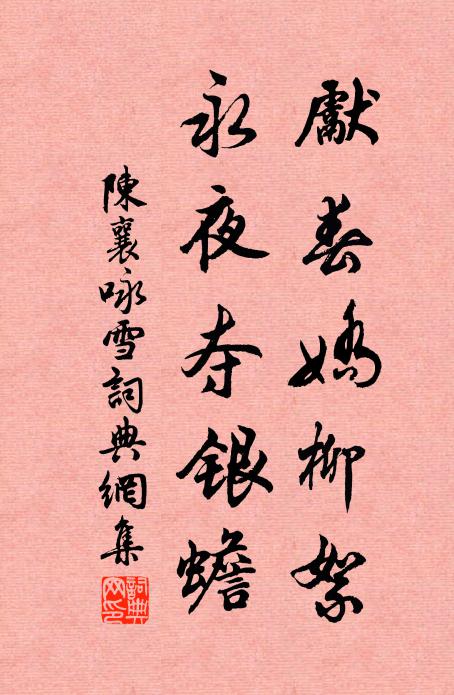 獻春嬌柳絮
永夜夺銀蟾
陳襄咏雪詞典網集
詞典网印